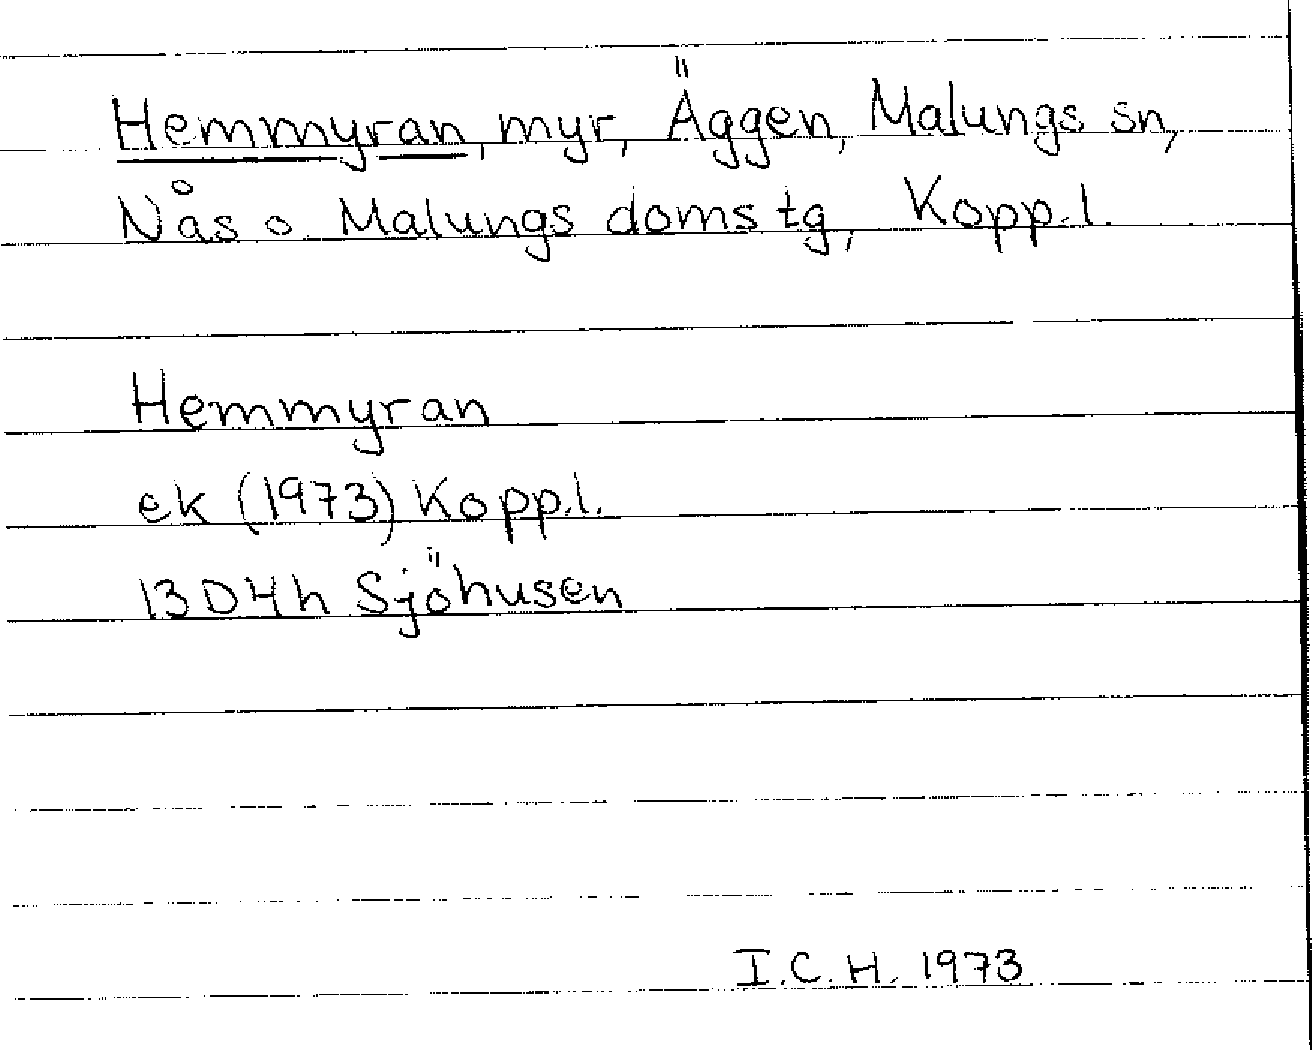 Hemmyran, myr, Äggen, Malungs sn,
Nås o. Malungs doms tg, Kopp.l.
Hemmyran
ek (1973) Kopp.l.
13D4h Sjöhusen
I.C.H. 1973